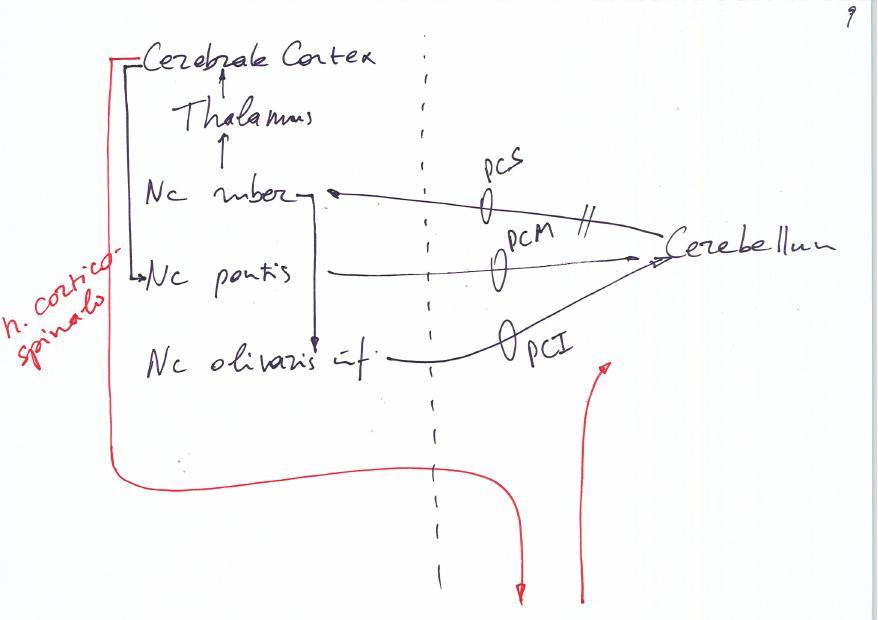 9
Cerebrale Cortex
Thalamus
PCS
Nc ruber
PCM
Cerebellum
Nc pontis
h. cortico-
spinale
PCI
Nc olivaris inf.